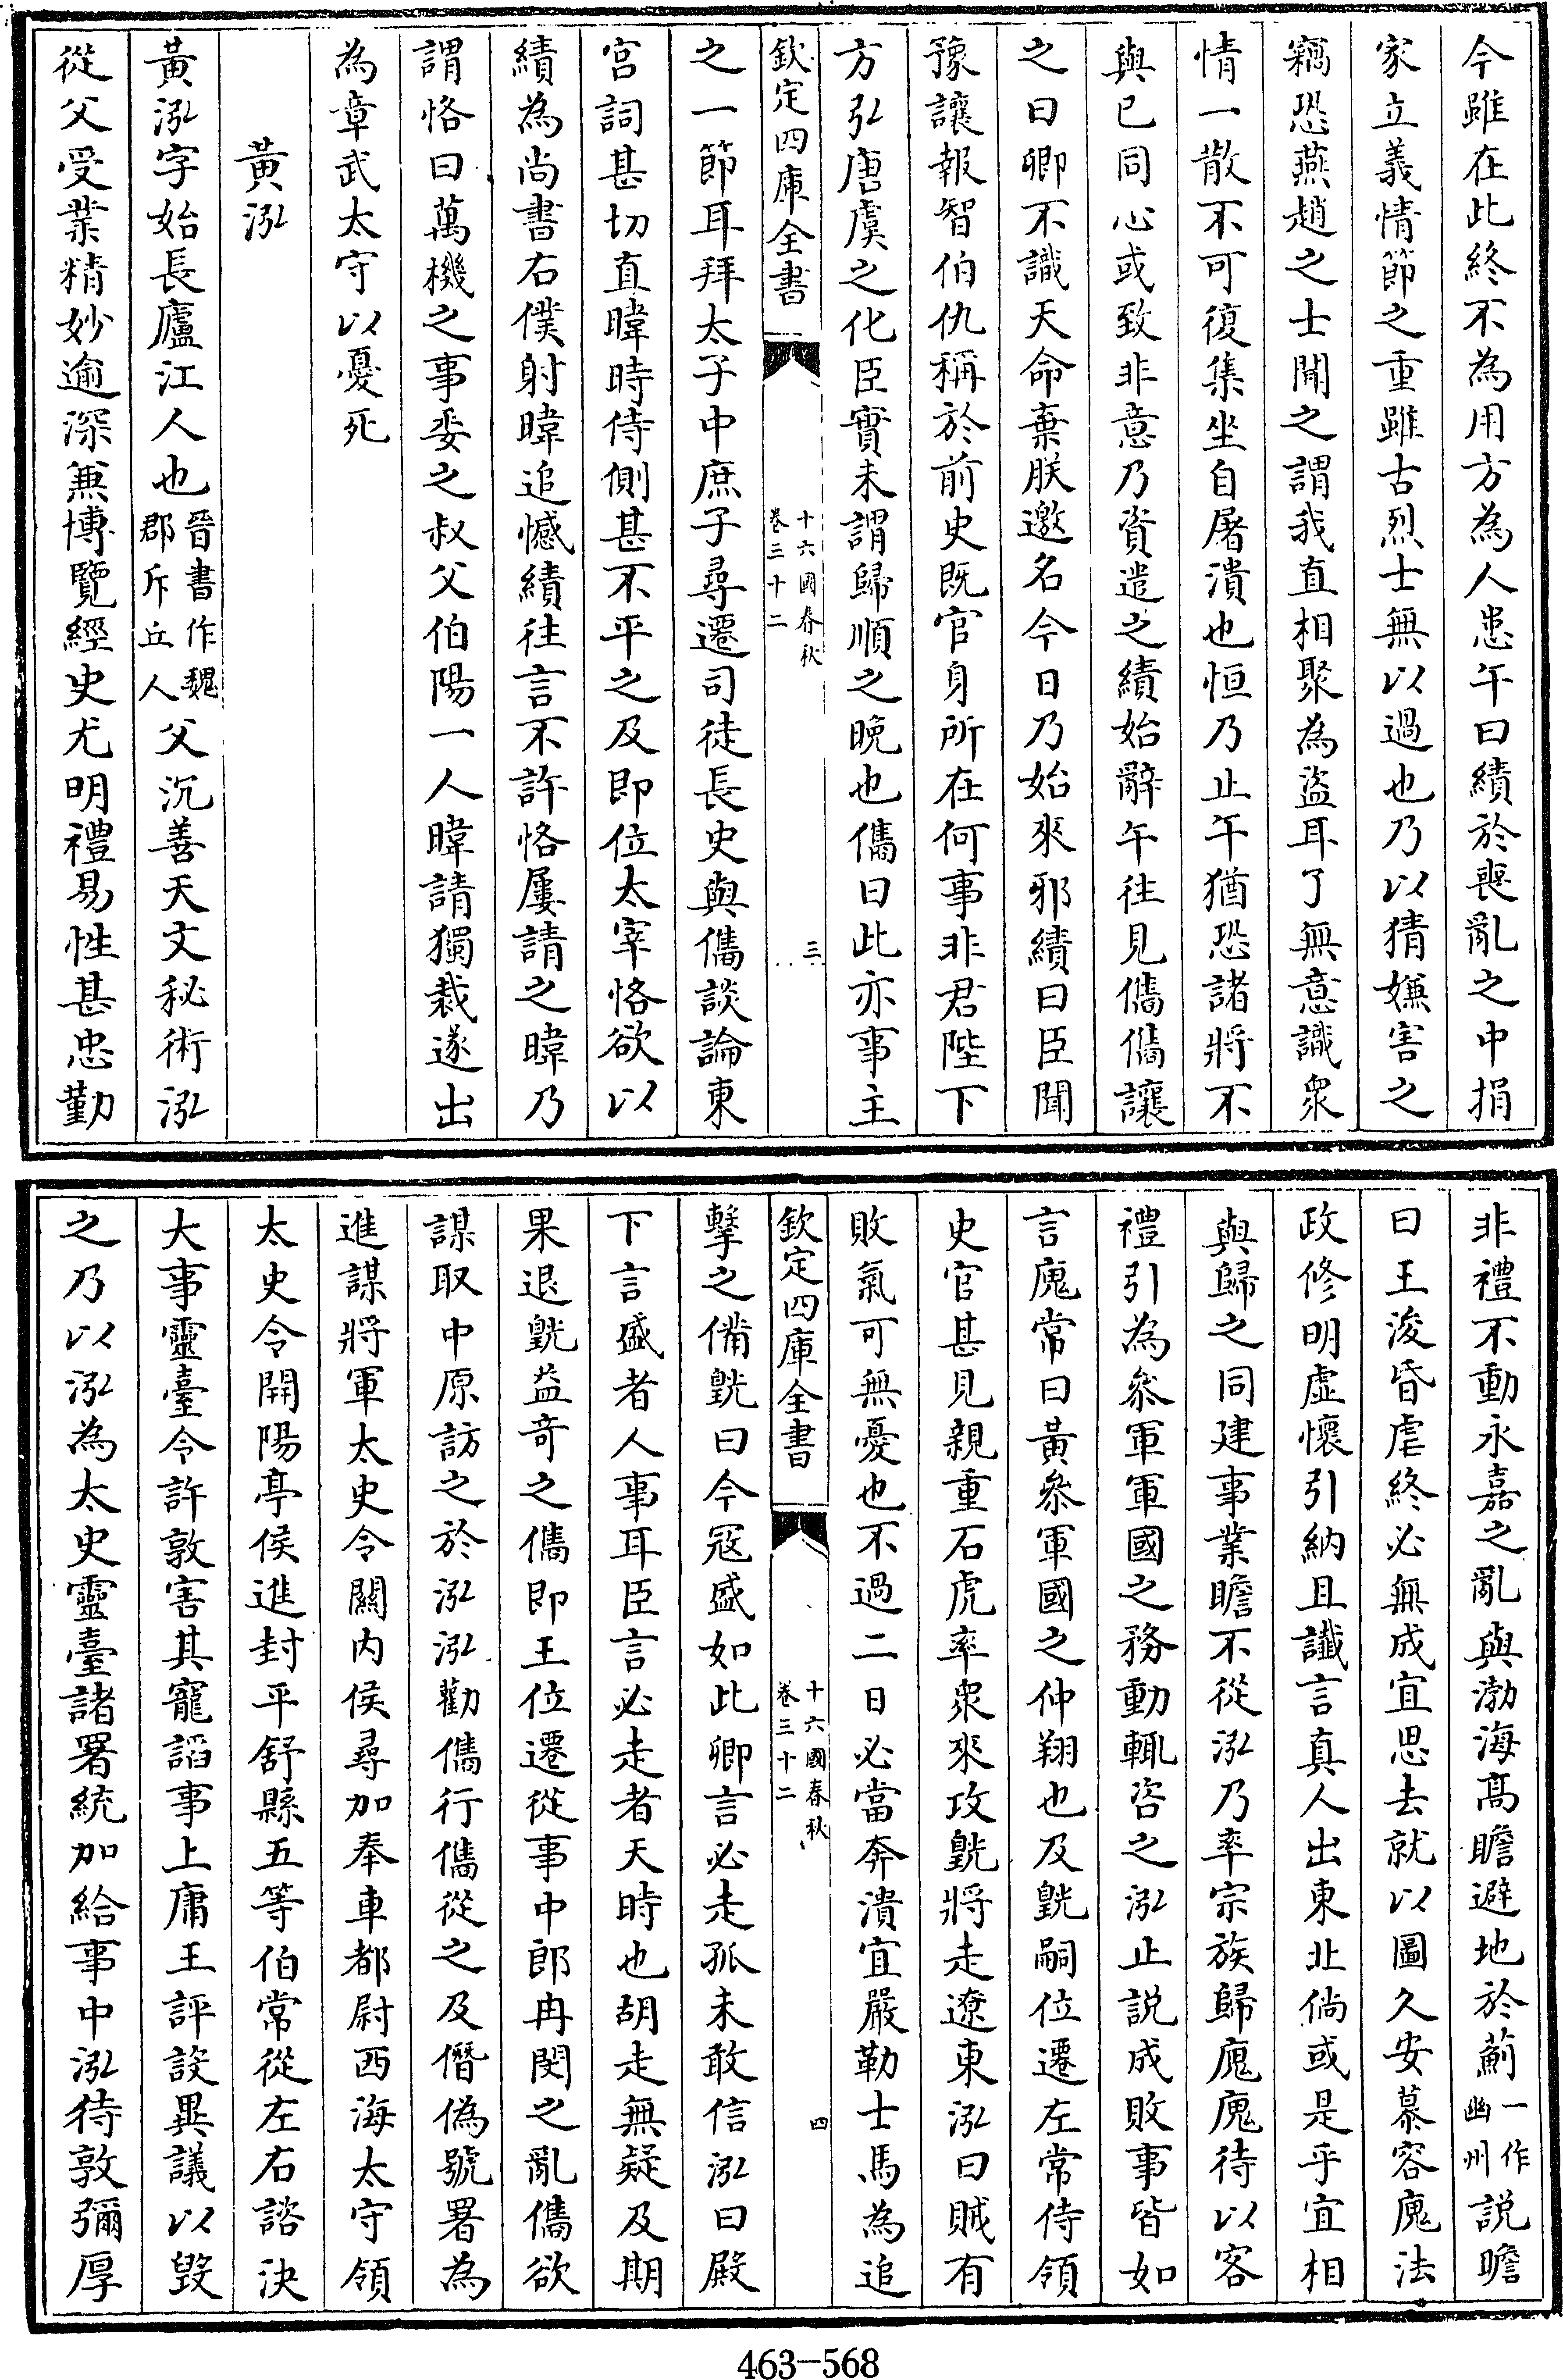 今雖在此終不為用方為人患午曰績於喪亂之中捐
家立義情節之重雖古烈士無以過也乃以猜嫌害之
竊恐燕趙之士聞之謂我直相聚為盜耳了無意識衆
情一散不可復集坐自屠潰也恒乃止午猶恐諸將不
與已同心或致非意乃資遣之績始辭午往見儁儁讓
之曰卿不識天命棄朕邀名今日乃始來邪績曰臣聞
豫讓報智伯仇稱於前史既官身所在何事非君陛下
方弘唐虞之化臣實未謂歸順之晚也儁曰此亦事主
欽定四庫全書
十六國春秋
卷三十二
三
之一節耳拜太子中庶子尋遷司徒長史與儁談論東
宮詞甚切直暐時侍側甚不平之及即位太宰恪欲以
績為尚書右僕射暐追憾績往言不許恪屢請之暐乃
謂恪曰萬機之事委之叔父伯陽一人暐請獨裁遂出
為章武太守以憂死
黃泓
黃泓字始長廬江人也晉書作魏郡斥丘人父沉善天文秘術泓
從父受業精妙逾深兼博覽經史尤明禮易性甚忠勤
非禮不動永嘉之亂與渤海髙瞻避地於薊一作幽州說瞻
曰王浚昏虐終必無成宜思去就以圖久安慕容廆法
政修明虛懷引納且讖言真人出東北倘或是乎宜相
與歸之同建事業瞻不從泓乃率宗族歸廆廆待以客
禮引為叅軍軍國之務動輒咨之泓止說成敗事皆如
言廆常曰黃叅軍國之仲翔也及皝嗣位遷左常侍領
史官甚見親重石虎率衆來攻皝將走遼東泓曰賊有
敗氣可無憂也不過二日必當奔潰宜嚴勒士馬為追
欽定四庫全書
十六國春秋
卷三十二
四
擊之備皝曰今冦盛如此卿言必走孤未敢信泓曰殿
下言盛者人事耳臣言必走者天時也胡走無疑及期
果退皝益竒之儁即王位遷從事中郎冉閔之亂儁欲
謀取中原訪之於泓泓勸儁行儁從之及僭偽號署為
進謀將軍太史令關内侯尋加奉車都尉西海太守領
太史令開陽亭侯進封平舒縣五等伯常從左右諮決
大事靈臺令許敦害其寵諂事上庸王評設異議以毀
之乃以泓為太史靈臺諸署統加給事中泓待敦彌厚
463-568